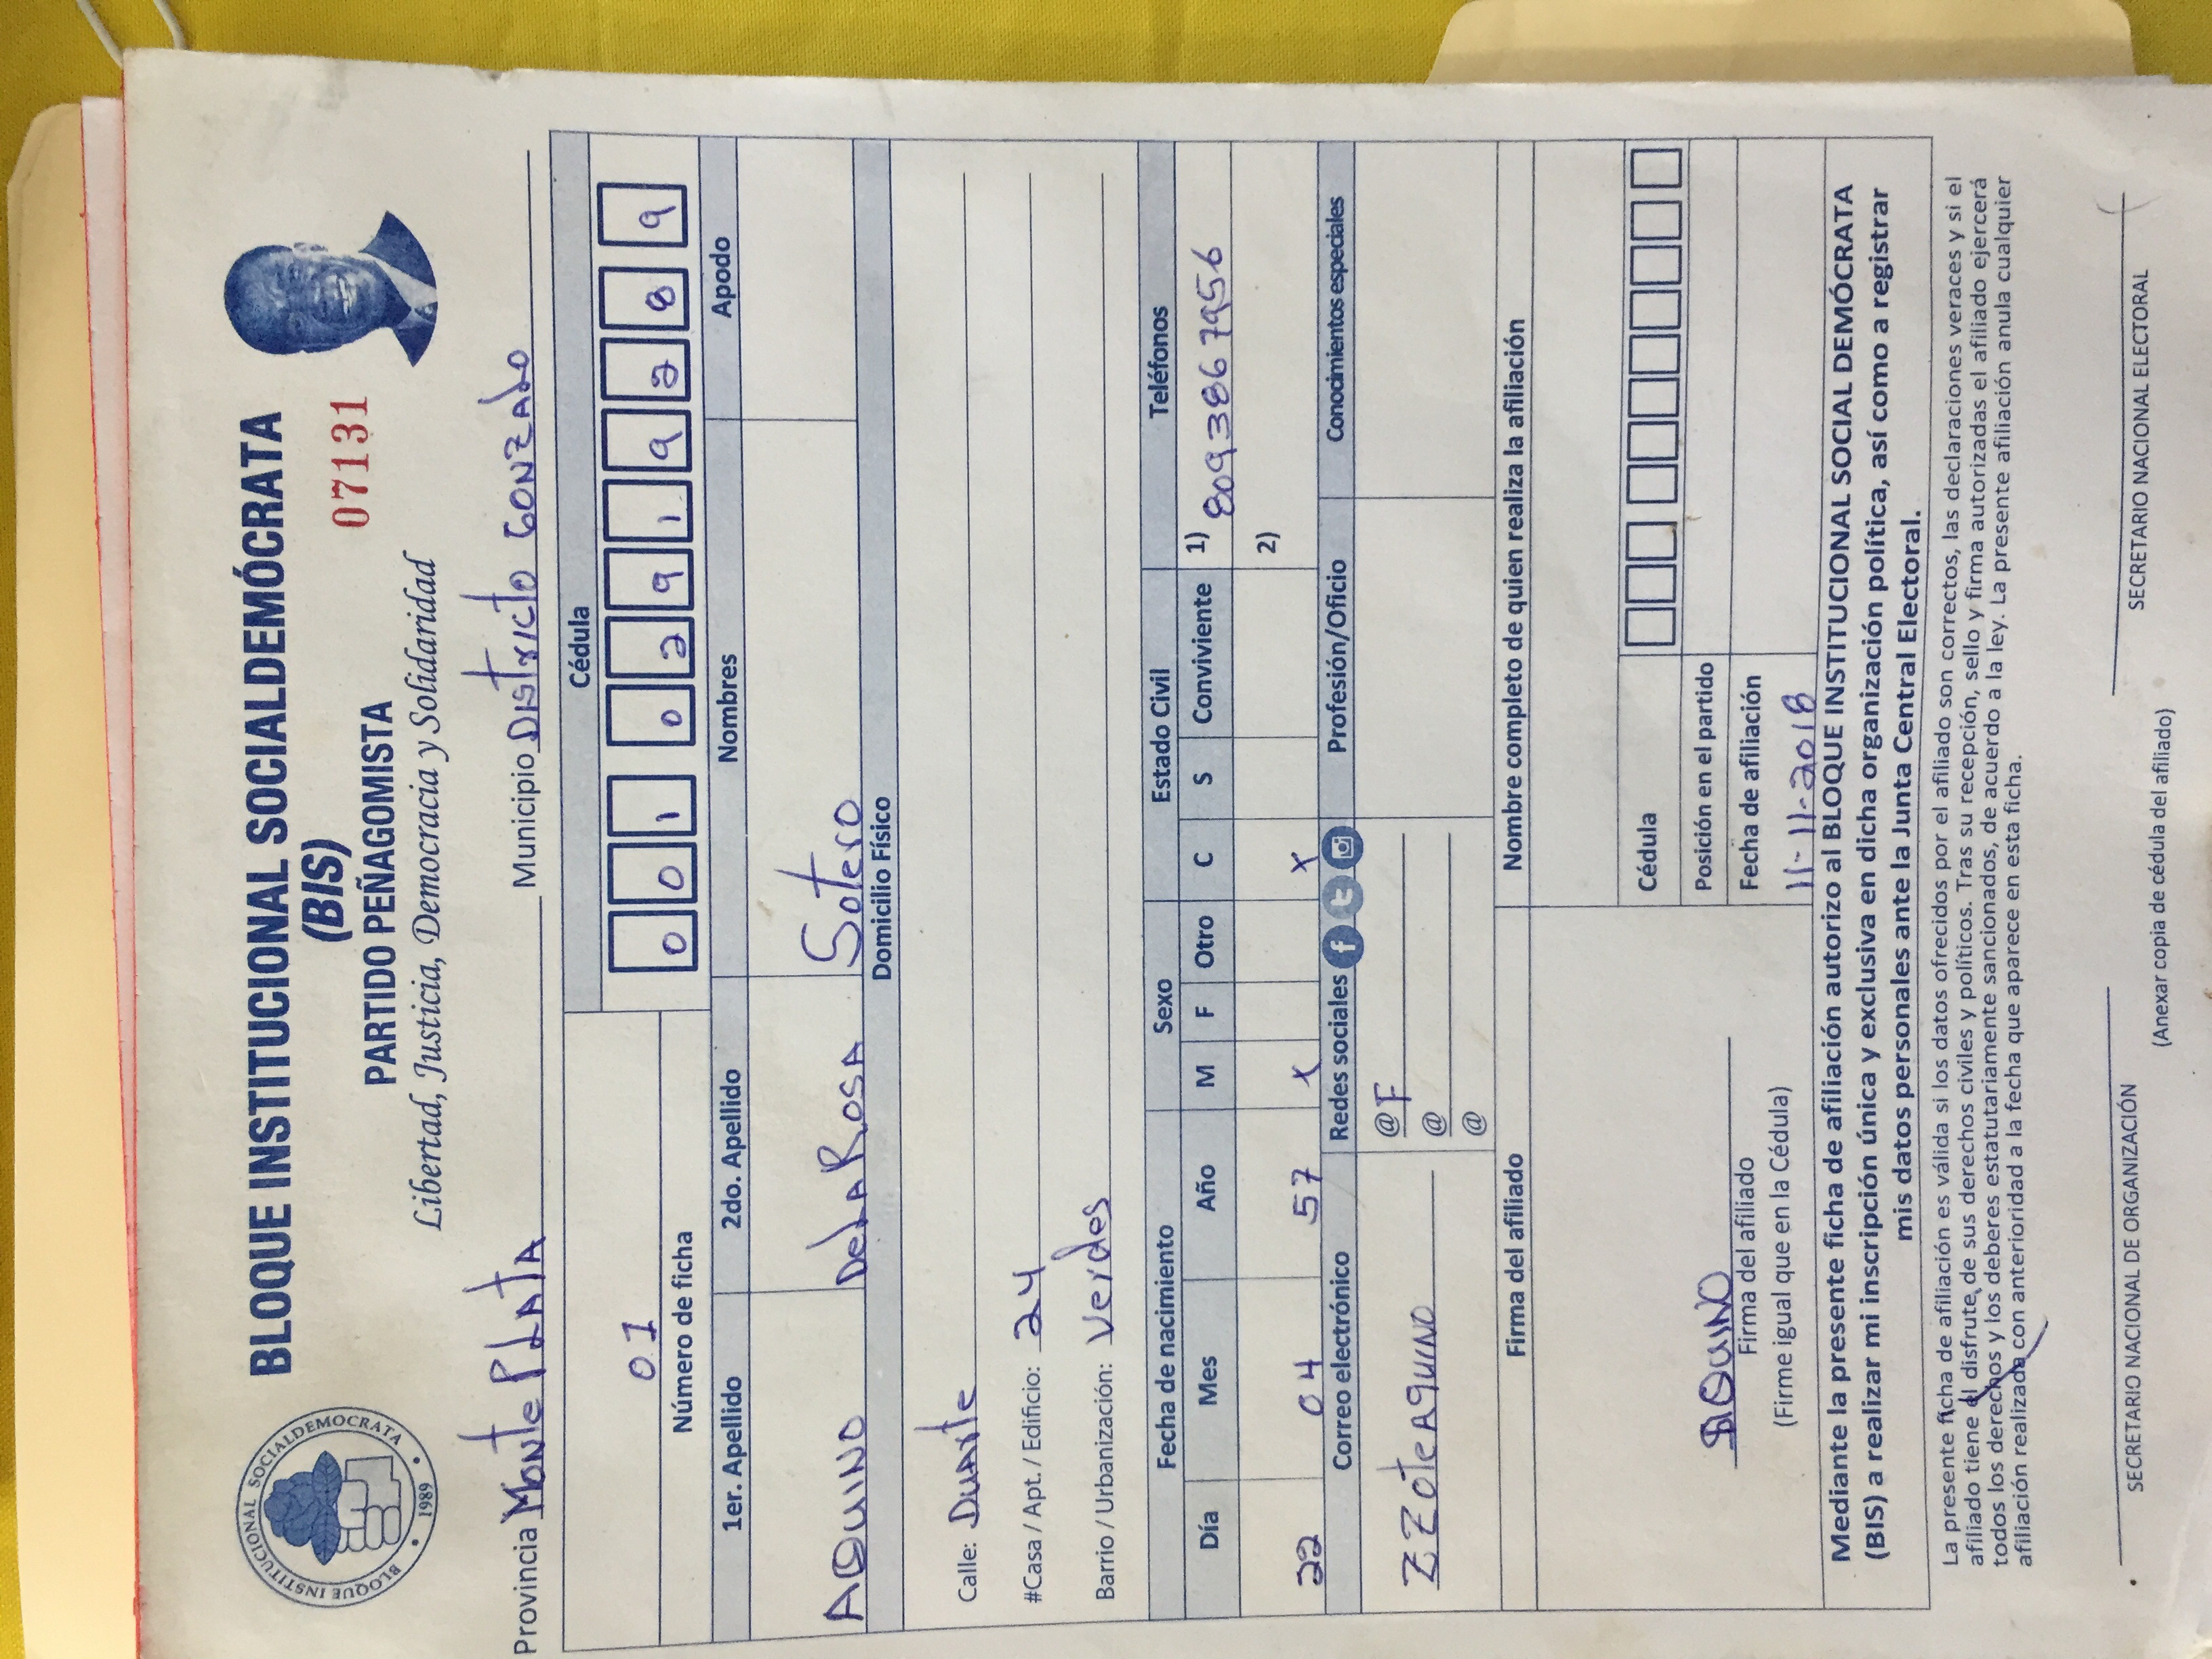 BLOQUE INSTITUCIONAL SOCIALDEMOCRATA
1989
BLOQUE INSTITUCIONAL SOCIALDEMÓCRATA
(BIS)
07131
PARTIDO PEÑAGOMISTA
Libertad, Justicia, Democracia y Solidaridad
Provincia Monte PLATA Municipio Districto GONZALO
Cédula
01 0 0 1 0 2 9 1 9 2 8 9
Número de ficha
1er. Apellido 2do. Apellido Nombres Apodo
AQUINO De LA ROSA Sotero
Domicilio Físico
Calle: Duarte
#Casa / Apt. / Edificio: 24
Barrio / Urbanización: Verdes
Fecha de nacimiento Sexo Estado Civil Teléfonos
Día Mes Año M F Otro C S Conviviente 1) 8093867956
22 04 57 x x 2)
Correo electrónico Redes sociales Profesión/Oficio Conocimientos especiales
ZZoteAquINO @F
@
@
Firma del afiliado Nombre completo de quien realiza la afiliación
Cédula
Posición en el partido
AQUINO Fecha de afiliación
Firma del afiliado 11-11-2018
(Firme igual que en la Cédula)
Mediante la presente ficha de afiliación autorizo al BLOQUE INSTITUCIONAL SOCIAL DEMÓCRATA
(BIS) a realizar mi inscripción única y exclusiva en dicha organización política, así como a registrar
mis datos personales ante la Junta Central Electoral.
La presente ficha de afiliación es válida si los datos ofrecidos por el afiliado son correctos, las declaraciones veraces y si el
afiliado tiene el disfrute, de sus derechos civiles y políticos. Tras su recepción, sello y firma autorizadas el afiliado ejercerá
todos los derechos y los deberes estatutariamente sancionados, de acuerdo a la ley. La presente afiliación anula cualquier
afiliación realizada con anterioridad a la fecha que aparece en esta ficha.
SECRETARIO NACIONAL DE ORGANIZACIÓN SECRETARIO NACIONAL ELECTORAL
(Anexar copia de cédula del afiliado)